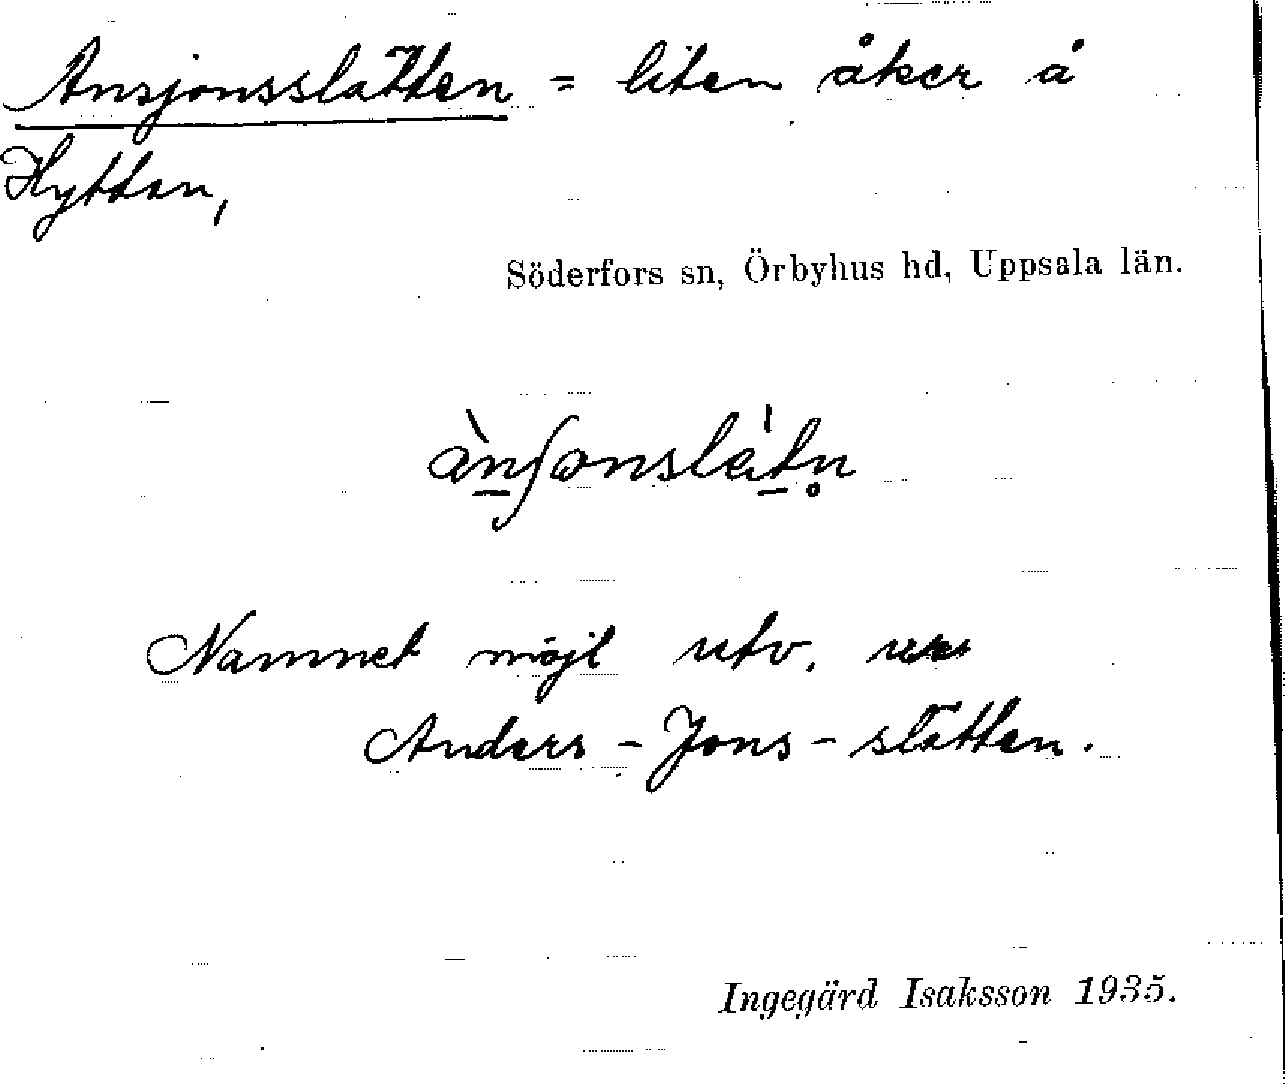 Ansjonsslätten = liten åker å
Hyttan,
Söderfors sn, Örbyhus hd, Uppsala län.
Namnet möjl utv. ur
Anders-Jons-slätten.
Ingegärd Isaksson 1935.